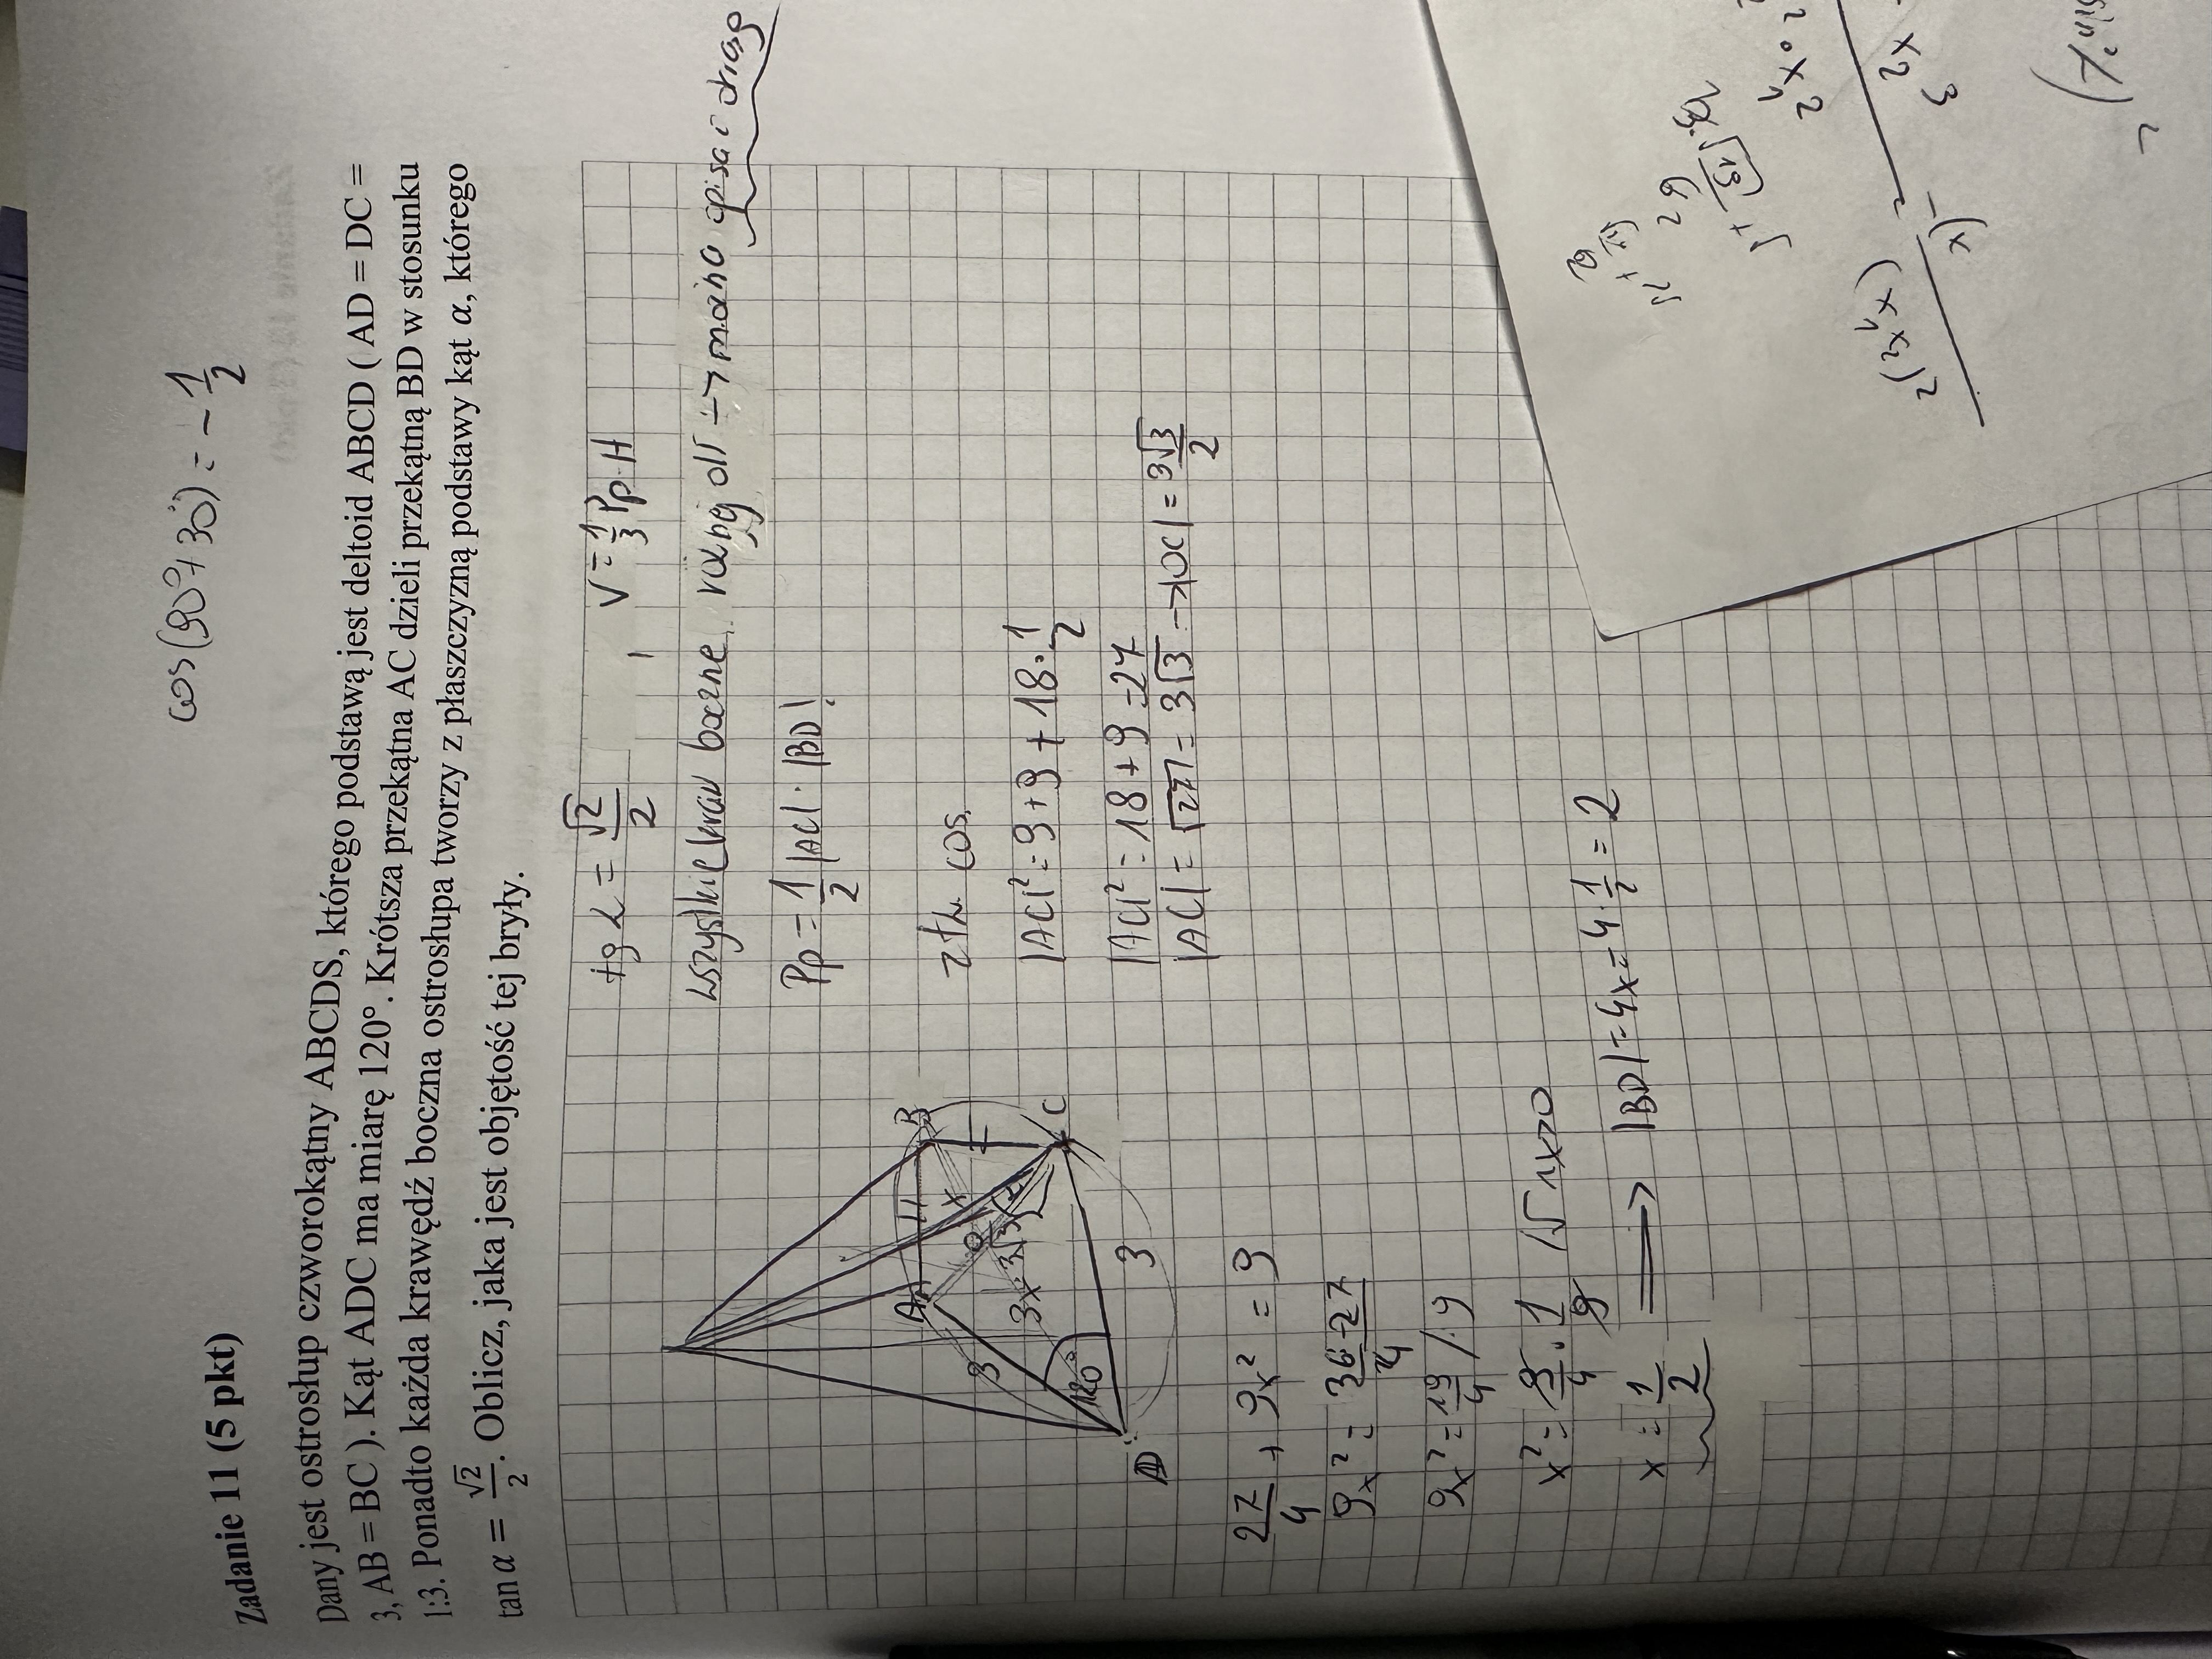 cos(90°+30°) = -1/2
Zadanie 11 (5 pkt)
Dany jest ostrosłup czworokątny ABCDS, którego podstawą jest deltoid ABCD ( AD = DC =
3, AB = BC ). Kąt ADC ma miarę 120°. Krótsza przekątna AC dzieli przekątną BD w stosunku
1:3. Ponadto każda krawędź boczna ostrosłupa tworzy z płaszczyzną podstawy kąt α, którego
tan α = √2/2. Oblicz, jaka jest objętość tej bryły.
tg α = √2/2
V = 1/3 Pp·H
wszystkie kraw boczne równej dł → można opisać okrąg
Pp = 1/2 |AC|·|BD|
z tw. cos.
|AC|² = 9+9+18·1/2
|AC|² = 18+9=27
|AC| = √27 = 3√3 → |OC| = 3√3/2
A
B
C
D
O
x
3x
3
3
120°
27/4 + 9x² = 9
9x² = 36-27/4
9x² = 9/4 /:9
x² = 9/4 · 1/9 /√ ∧x>0
x = 1/2 ⟹ |BD| = 4x = 4·1/2 = 2